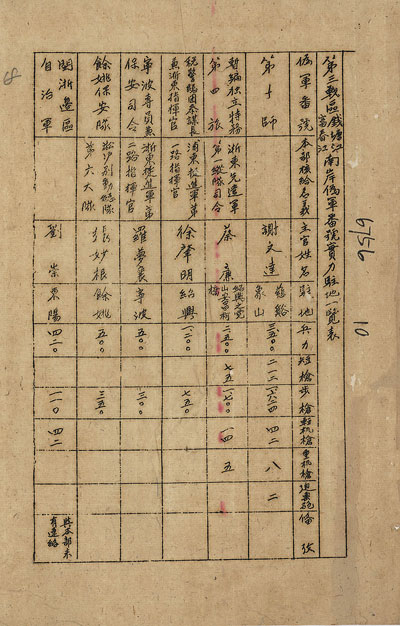 第三戰區錢塘江富春江南岸偽軍番號實力駐地一覽表
偽軍番號 本部核給名義 主官姓名 駐地 兵力 短槍 步槍 輕机槍 重机槍 迫击砲 備攷
第十師 謝文達 象山 三五〇〇 二一二 四二 八 二
暫編獨立特務第四旅 浙東先遣軍第一縱隊司令 蔡廉 二五〇〇 七五 一七〇〇 一四 五
浙東指揮官 浦東挺進軍第一路指揮官 徐肇明 紹興 一二〇〇 七五〇
寧波專員兼保安司令 浙東挺進軍第二路指揮官 羅夢晨 寧波 五〇〇 三〇〇
餘姚保安隊 淞滬別動總隊第六大隊 張妙根 餘姚 五〇〇 三五〇
閩浙邊區自治軍 劉崇 東陽 四二〇 一一〇 四二 與本部未有連絡
6756
10
68